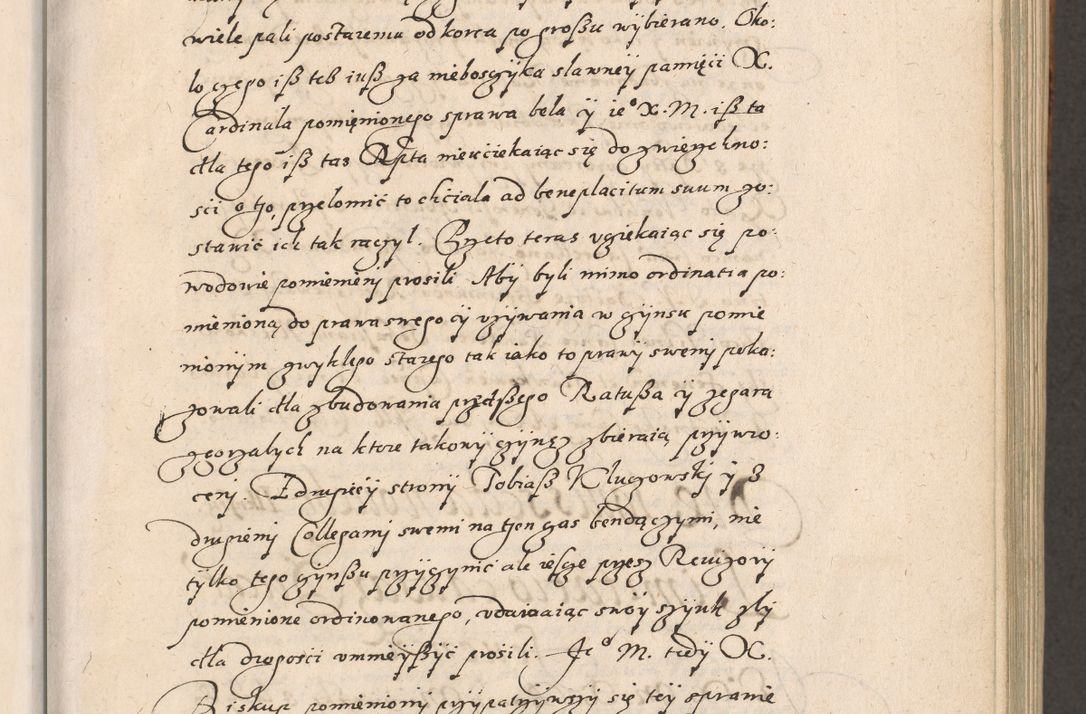 wiele pali postaremu od korca po großu wybierano. Oko:
lo czego iß teß iuß za nieboszczyka slawney pamięci X.
Cardinala pomięnionego sprawa bela y ie° X. M. iß ta
dla tego iß tas Rzsta niewciekaiąc się do zwierzchno:
sci o tjo, przelomić to chciala ad beneplacitum suum zo:
stawić ich tak raczyl. Przeto teras vciekaiąc się po:
wodowie pomienieni prosili. Aby byli mimo ordinatia po:
mienioną, do prawa swego y vzywania w czynsu pomie
nionym zwyklego starego tak iako to prawy swemi poka:
zowali dla zbudowania przedßego Ratußa y zegara
zgorzalych na ktore takowy czynsz zbieraią przywro:
ceni. Z drugiey strony Tobiaß Kluczowski y z
drugiemi Collegami swemi na tjen czas bendączymi, nie
tylko tego czynßu przyczynić ale iescze przesz Rewizory
pomienione ordinowanego, vdawaiąc swoy szynk zly
dla drogosci vmnieyßyć prosili. Je° M. tedy X.
Biskup pomieniony przypatrzywszy się tey sprawie